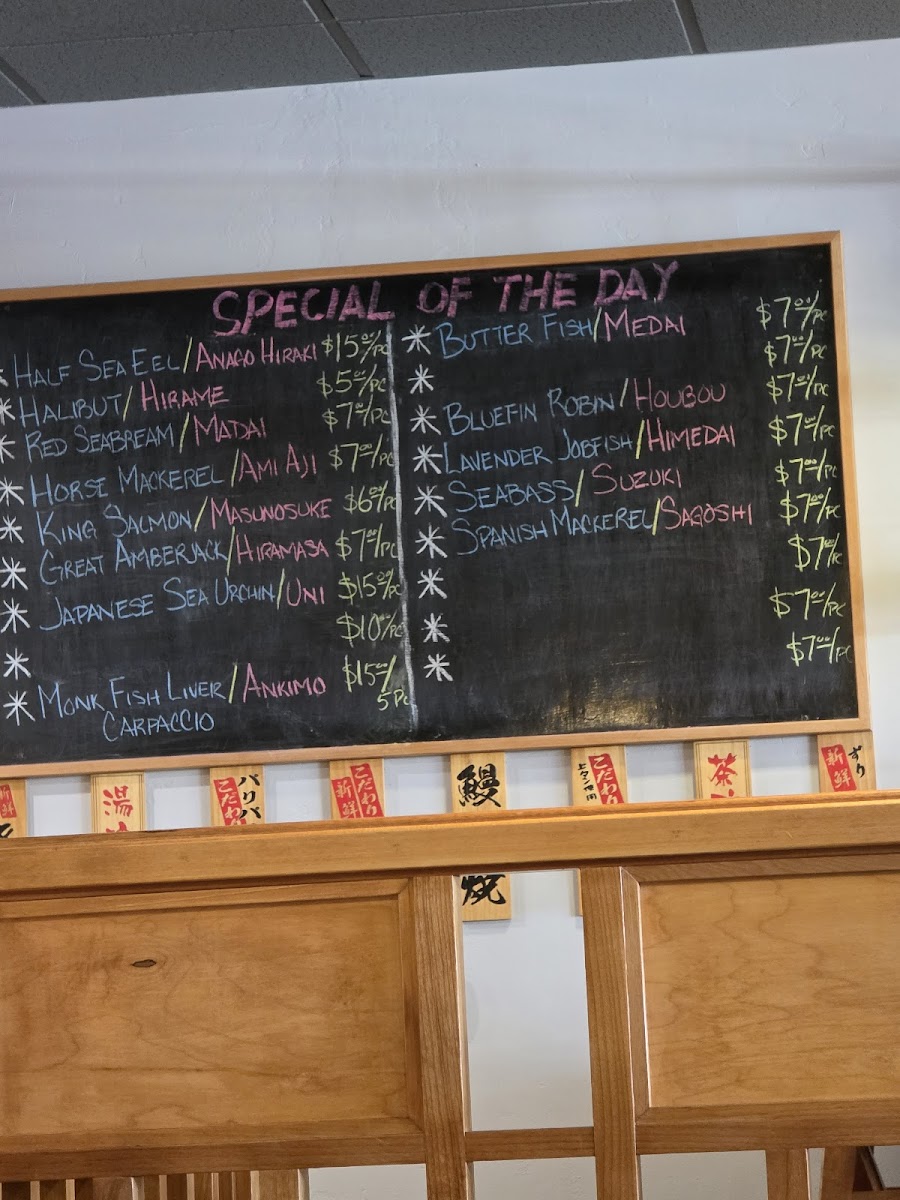 SPECIAL OF THE DAY
HALF SEA EEL/ANAGO HIRAKI $15.00/PC
HALIBUT/HIRAME $5.00/PC
RED SEABREAM/MADAI $7.00/PC
HORSE MACKEREL/AMI AJI $7.00/PC
KING SALMON/MASUNOSUKE $6.00/PC
GREAT AMBERJACK/HIRAMASA $7.00/PC
JAPANESE SEA URCHIN/UNI $15.00/PC
$10.00/PC
MONK FISH LIVER/ANKIMO $15.00/5PC
CARPACCIO
BUTTER FISH/MEDAI $7.00/PC
$7.00/PC
BLUEFIN ROBIN/HOUBOU $7.00/PC
LAVENDER JOBFISH/HIMEDAI $7.00/PC
SEABASS/SUZUKI $7.00/PC
SPANISH MACKEREL/SAGOSHI $7.00/PC
$7.00/PC
$7.00/PC
$7.00/PC
新鮮
湯
パリパ
こだわ
こだわり
新鮮
鰻
焼
こだわり
上タン使用
茶
ずり
新鮮